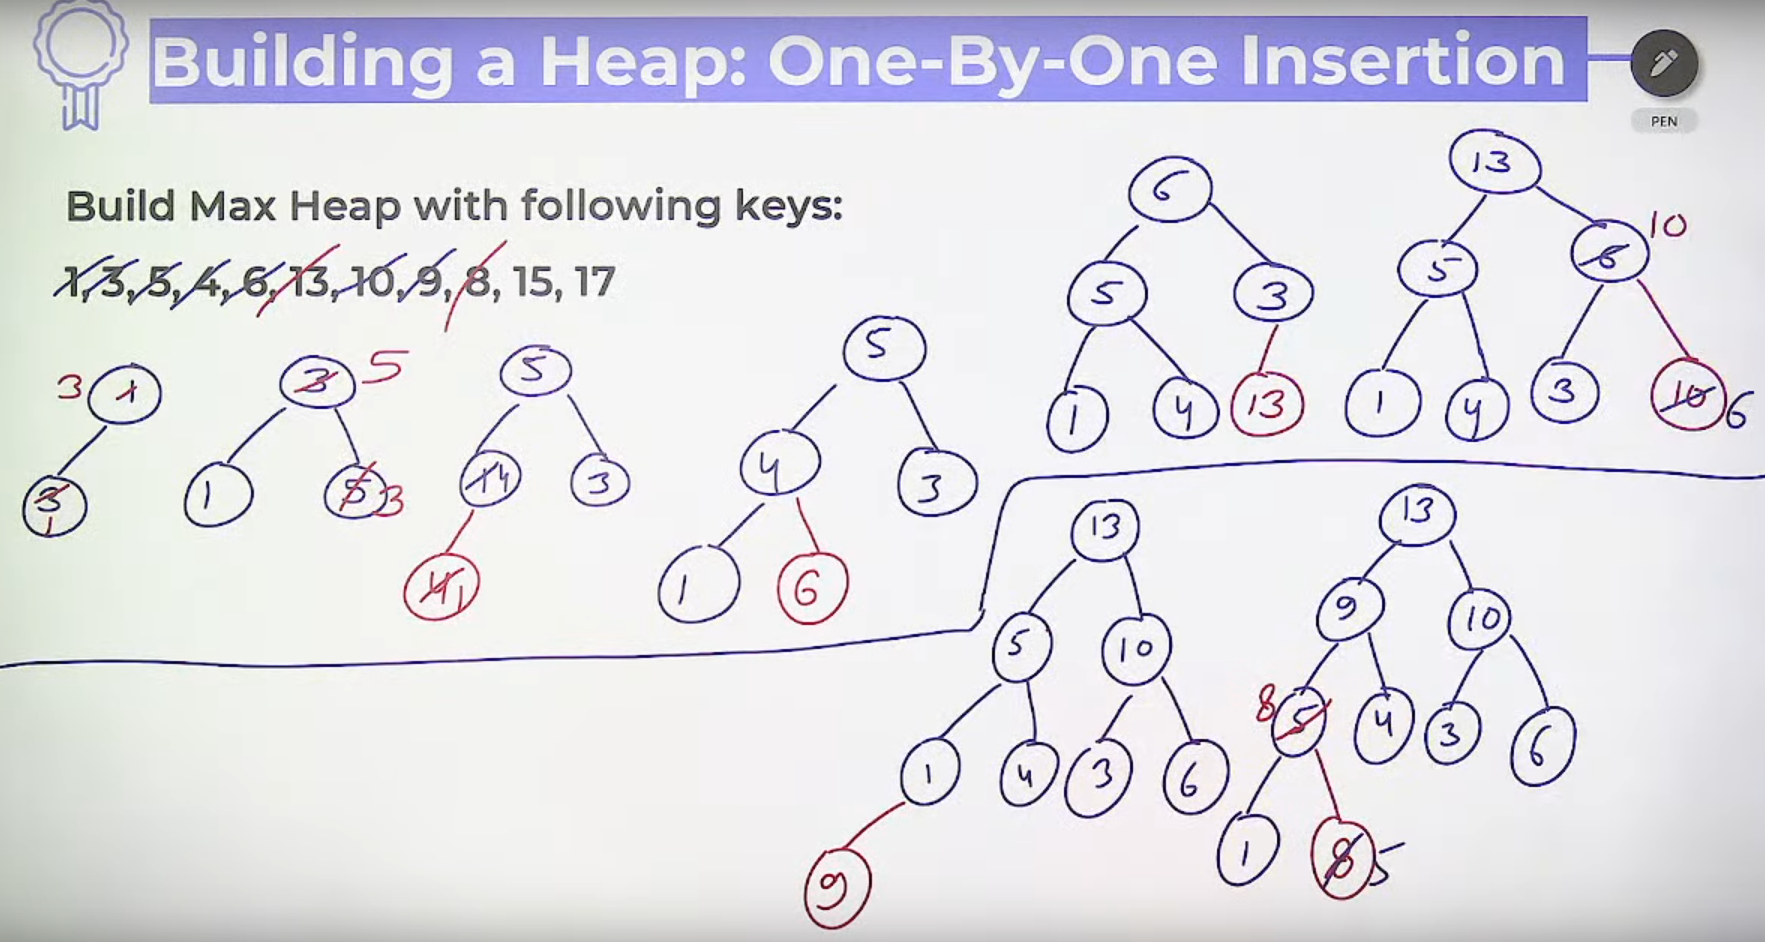 Building a Heap: One-By-One Insertion
PEN
Build Max Heap with following keys:
1, 3, 5, 4, 6, 13, 10, 9, 8, 15, 17
3 1
3
1
3 5
1 5 3
5
1 4 3
4 1
5
4 3
1 6
6
5 3
1 4 13
13
5 6 10
1 4 3 10 6
13
5 10
1 4 3 6
9
13
9 10
8 5 4 3 6
1 8 5